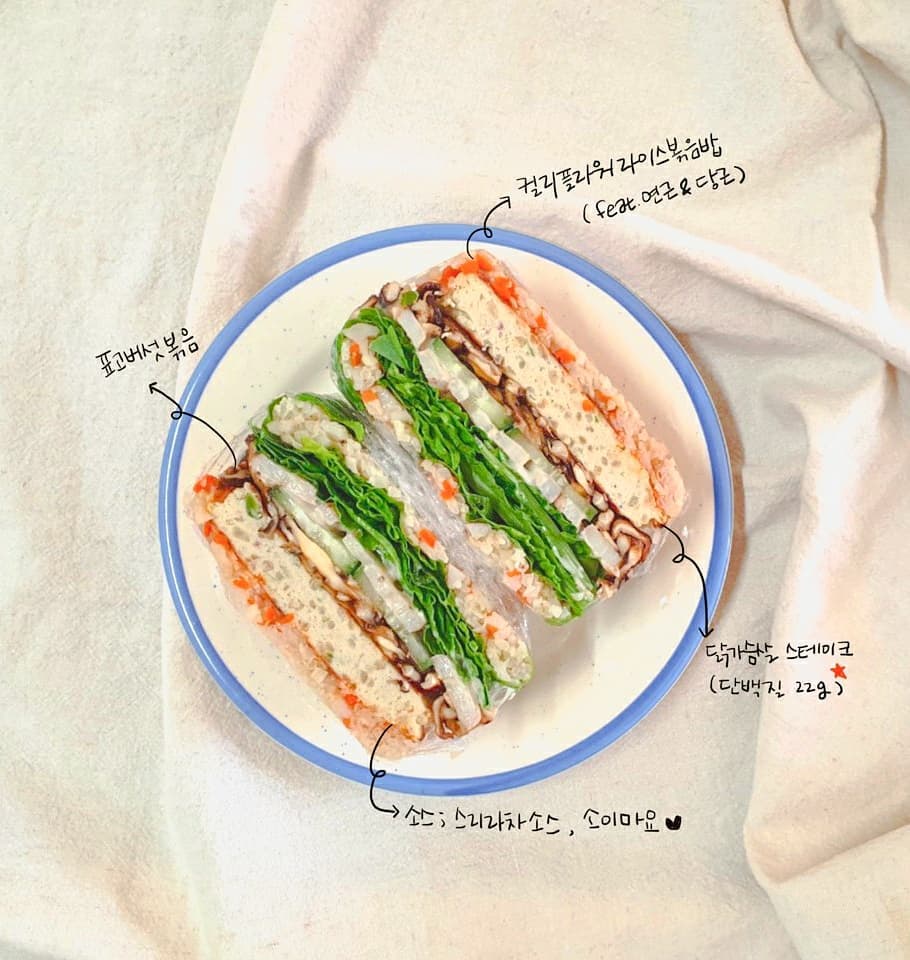 컬리플라워 라이스 볶음밥
(feat. 연근 & 당근)
표고버섯 볶음
닭가슴살 스테이크
(단백질 22g)
소스; 스리라차소스, 소이마요